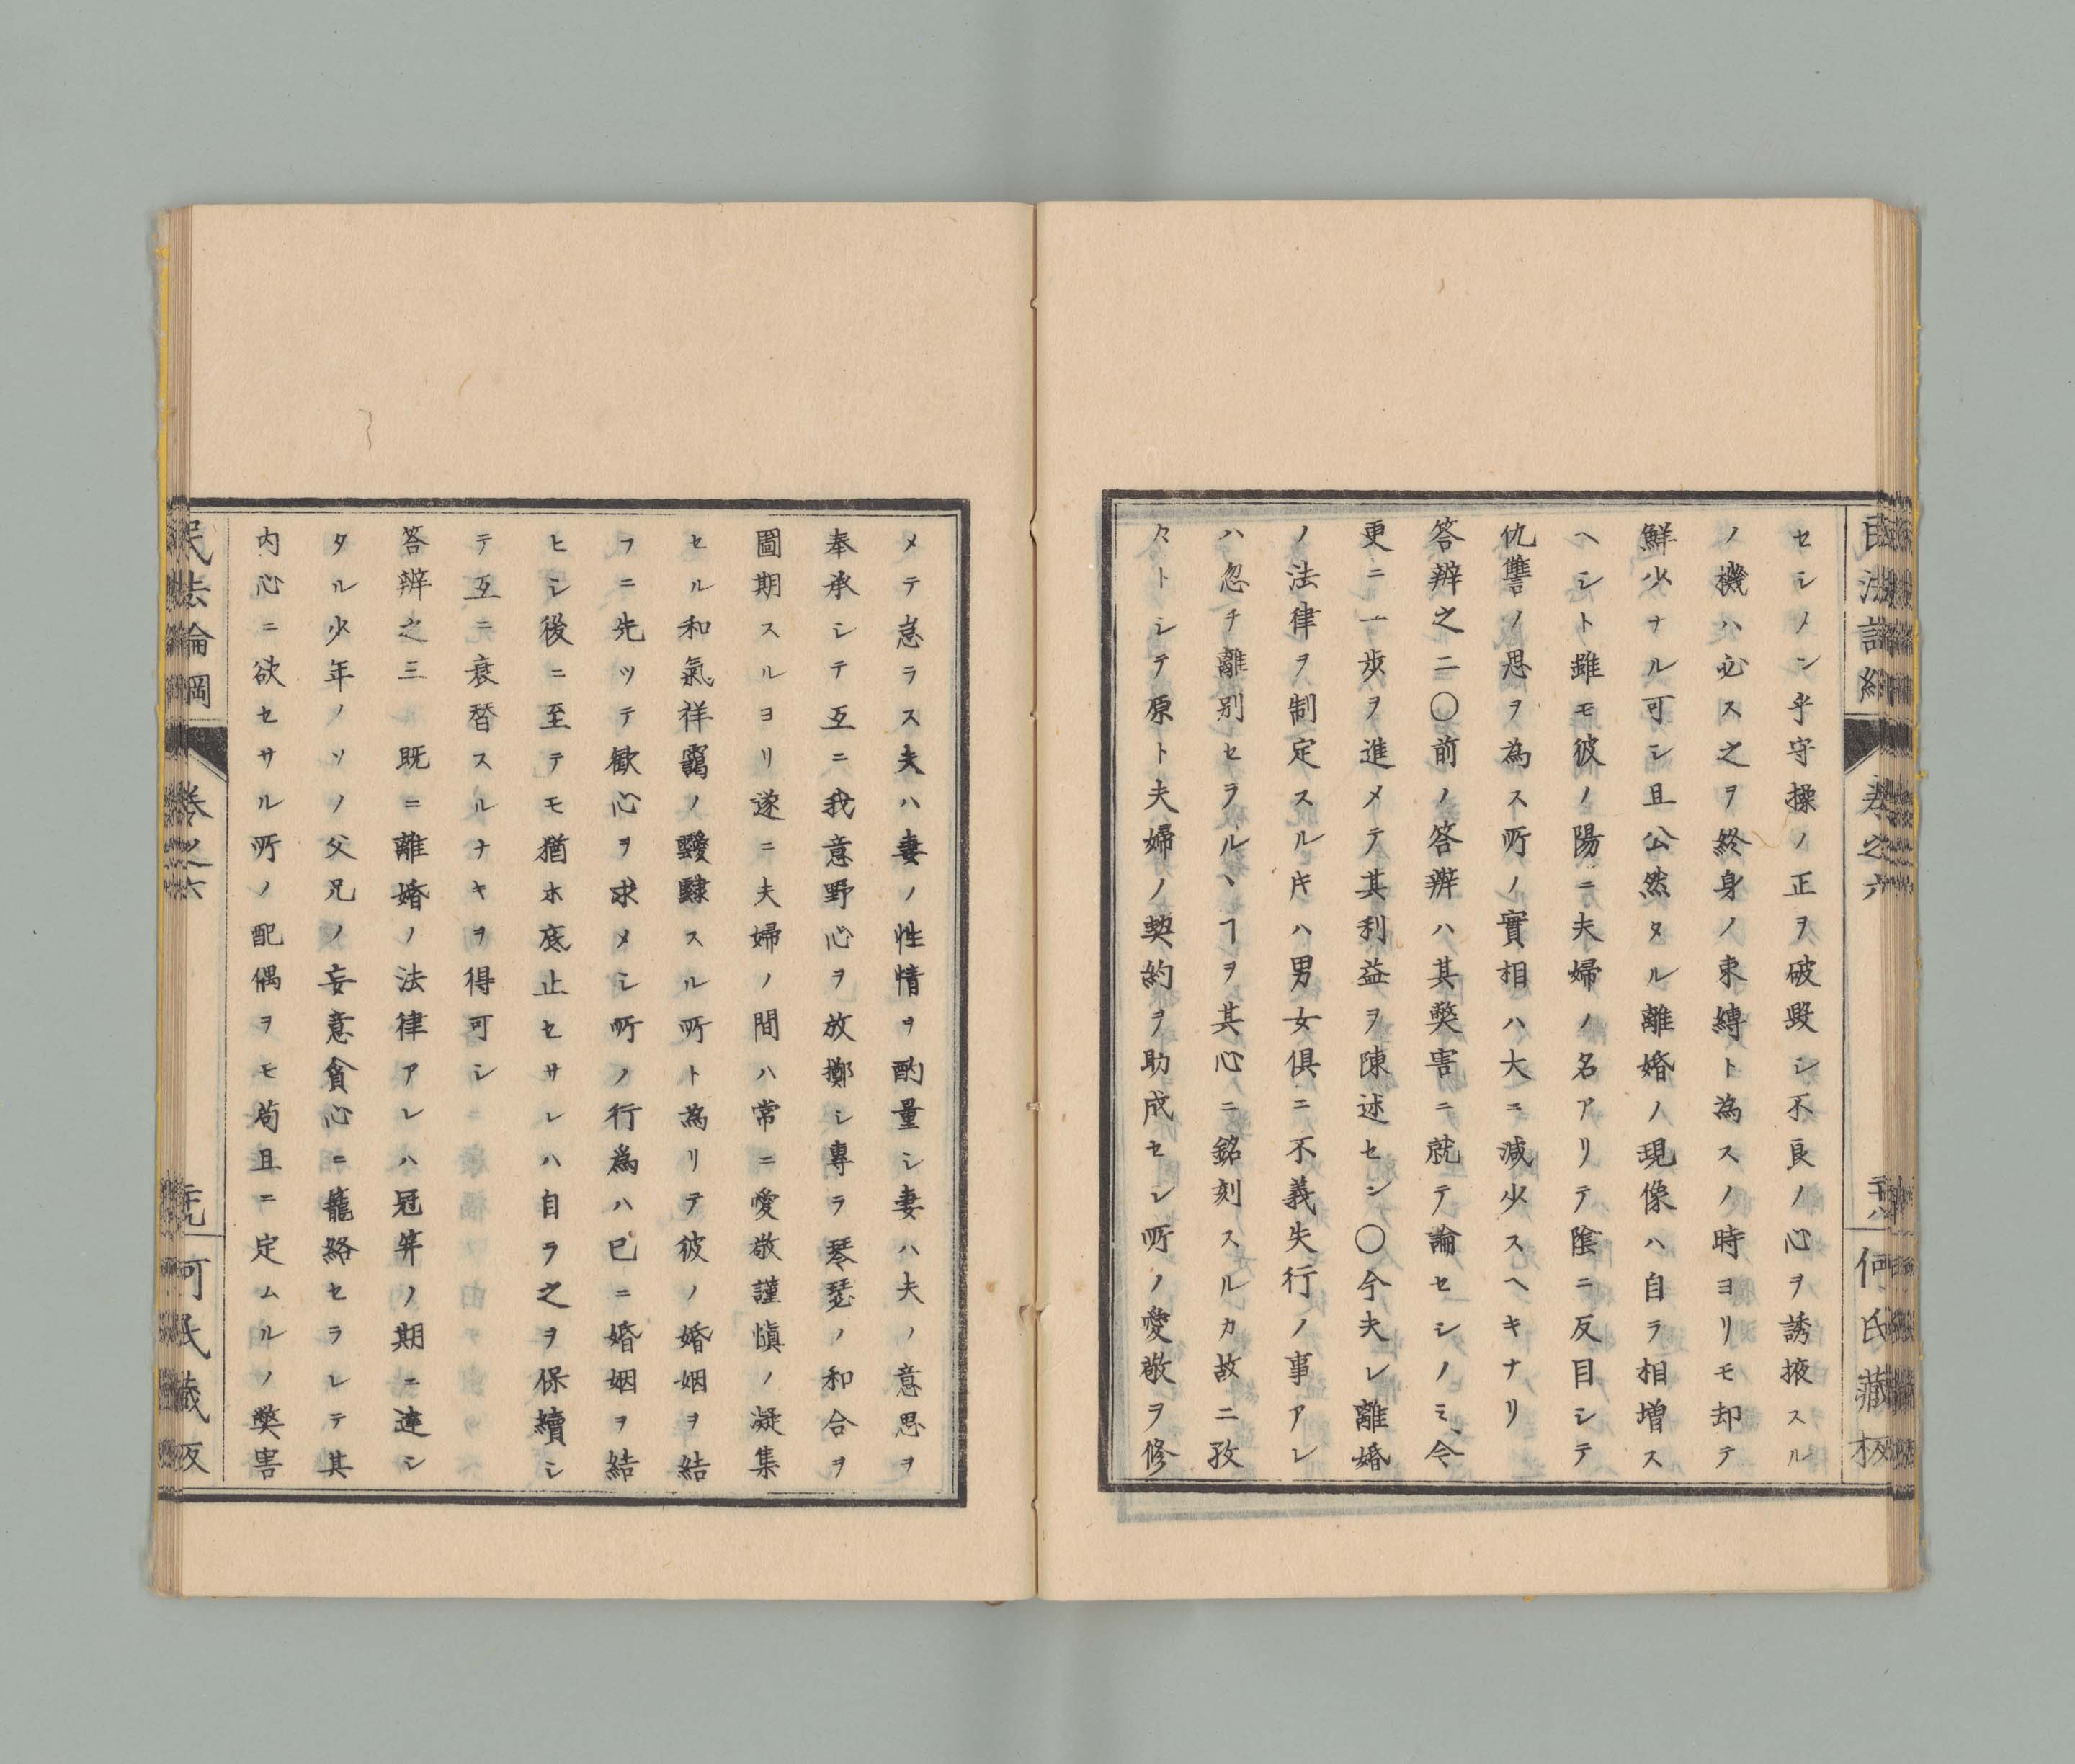 民法論綱
巻之六
二十八
何氏藏板
セシメン乎守操ノ正ヲ破毀シ不良ノ心ヲ誘掖スル
ノ機ハ必ス之ヲ終身ノ束縛ト為スノ時ヨリモ却テ
鮮少ナル可シ且公然タル離婚ノ現像ハ自ラ相増ス
ヘシト雖モ彼ノ陽ニ夫婦ノ名アリテ陰ニ反目シテ
仇讐ノ思ヲ為ス所ノ實相ハ大ニ減少スヘキナリ
答辨之二〇前ノ答辨ハ其獘害ニ就テ論セシノミ、今
更ニ一歩ヲ進メテ其利益ヲ陳述セン〇今夫レ離婚
ノ法律ヲ制定スル𪜈ハ男女俱ニ不義失行ノ事アレ
ハ忽チ離別セラルヽヿヲ其心ニ銘刻スルカ故ニ孜
々トシテ原ト夫婦ノ契約ヲ助成セシ所ノ愛敬ヲ修
メテ怠ラス夫ハ妻ノ性情ヲ酌量シ妻ハ夫ノ意思ヲ
奉承シテ互ニ我意野心ヲ放擲シ專ラ琴瑟ノ和合ヲ
圖期スルヨリ遂ニ夫婦ノ間ハ常ニ愛敬謹愼ノ凝集
セル和氣祥靄ノ靉靆スル所ト為リテ彼ノ婚姻ヲ結
フニ先ツテ歓心ヲ求メシ所ノ行為ハ已ニ婚姻ヲ結
ヒシ後ニ至テモ猶ホ底止セサレハ自ラ之ヲ保續シ
テ互ニ衰替スルナキヲ得可シ
答辨之三 既ニ離婚ノ法律アレハ冠笄ノ期ニ達シ
タル少年ノソノ父兄ノ妄意貪心ニ籠絡セラレテ其
内心ニ欲セサル所ノ配偶ヲモ苟且ニ定ムルノ獘害
民法論綱
巻之六
二十九
何氏藏板